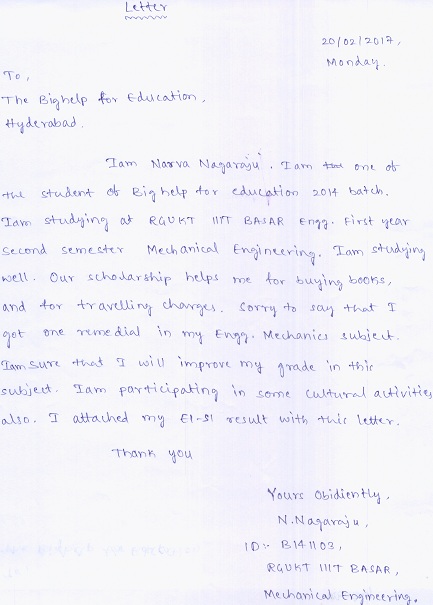 Letter
20/02/2017,
Monday.
To,
The Bighelp for Education,
Hyderabad.
Iam Narva Nagaraju. Iam the one of
the student of Big help for education 2014 batch.
Iam studying at RGUKT IIIT BASAR Engg. First year
Second semester Mechanical Engineering. Iam studying
well. Our scholarship helps me for buying books,
and for travelling charges. Sorry to say that I
got one remedial in my Engg. Mechanics subject.
Iam sure that I will improve my grade in this
subject. Iam participating in some cultural activities
also. I attached my E1-S1 result with this letter.
Thank you
Yours Obidiently,
N.Nagaraju,
ID:- B141103,
RGUKT IIIT BASAR,
Mechanical Engineering.